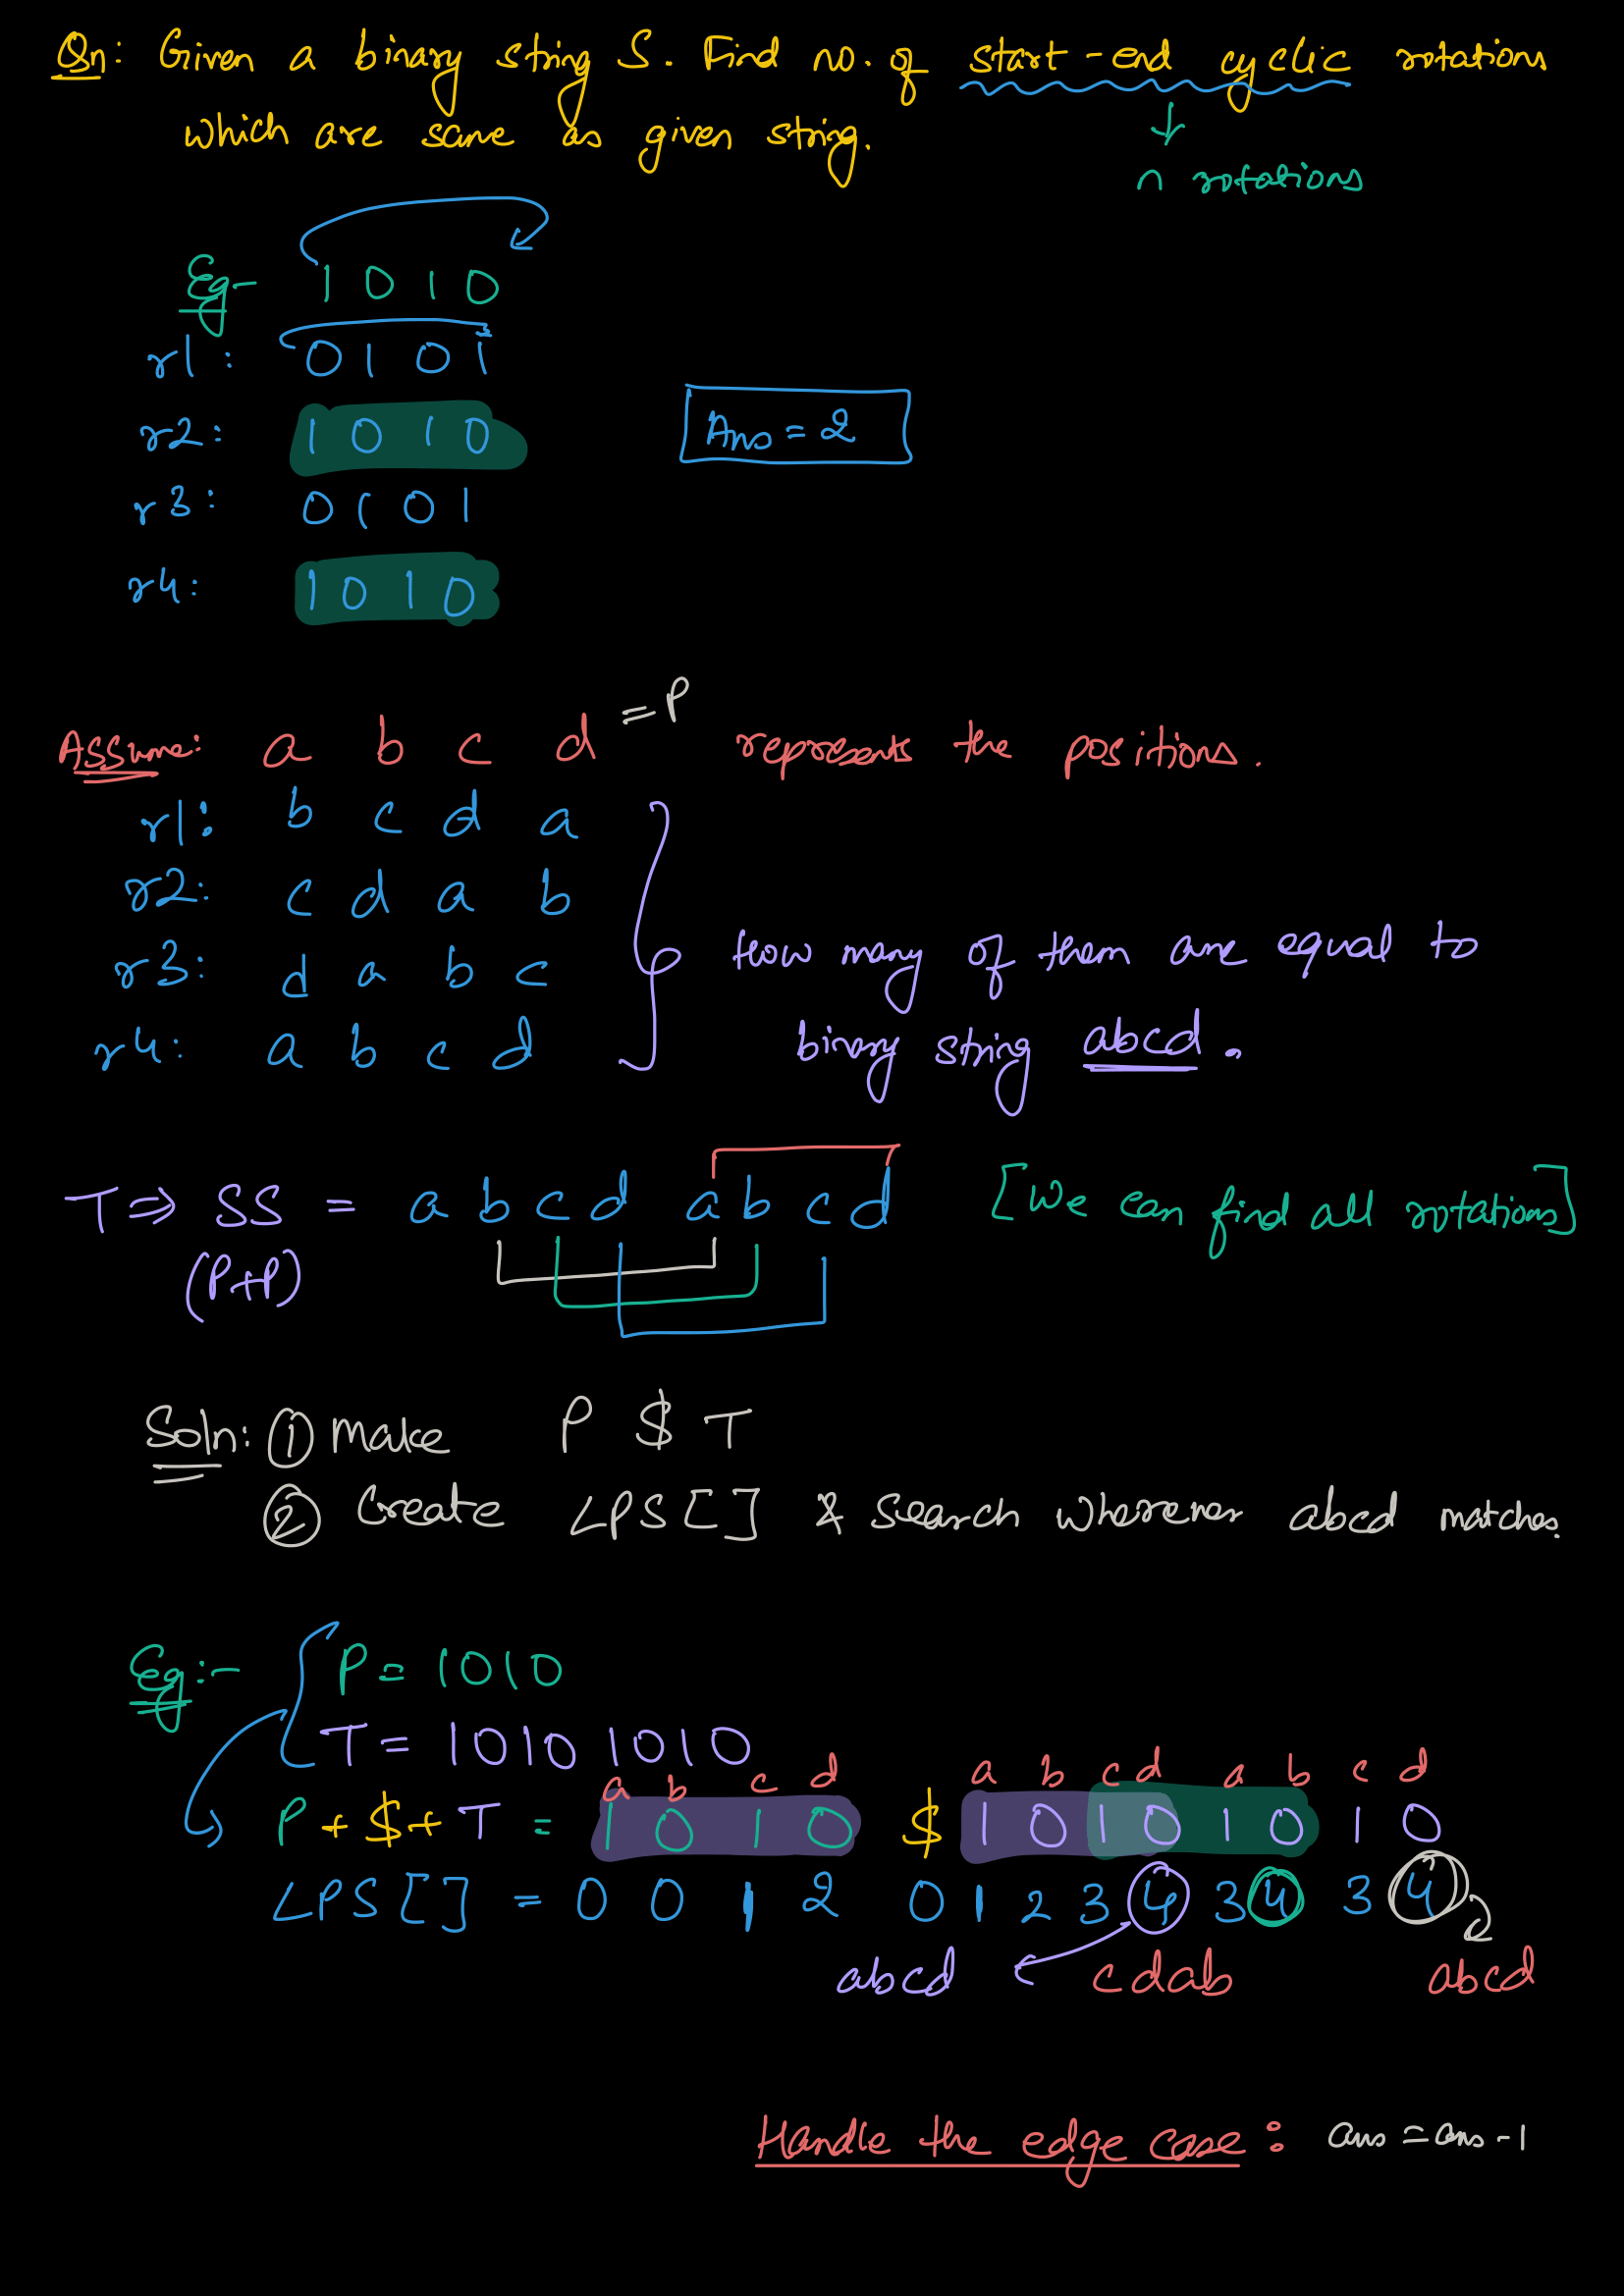 Qn: Given a binary string S. Find no. of start-end cyclic rotations
which are same as given string.
↓
n rotations
Eg- 1 0 1 0
r1: 0 1 0 1
r2: 1 0 1 0
Ans = 2
r3: 0 1 0 1
r4: 1 0 1 0
Assume: a b c d = P represents the positions.
r1: b c d a
r2: c d a b
r3: d a b c
How many of them are equal to
r4: a b c d
binary string abcd.
T ⇒ SS = a b c d a b c d [We can find all rotations]
(P+P)
Soln: ① Make P $ T
② Create LPS[] & search wherever abcd matches.
Eg:- P = 1010
T = 1010 1010
a b c d a b c d a b c d
P + $ + T = 1 0 1 0 $ 1 0 1 0 1 0 1 0
LPS[] = 0 0 1 2 0 1 2 3 4 3 4 3 4
abcd cdab abcd
Handle the edge case: ans = ans - 1